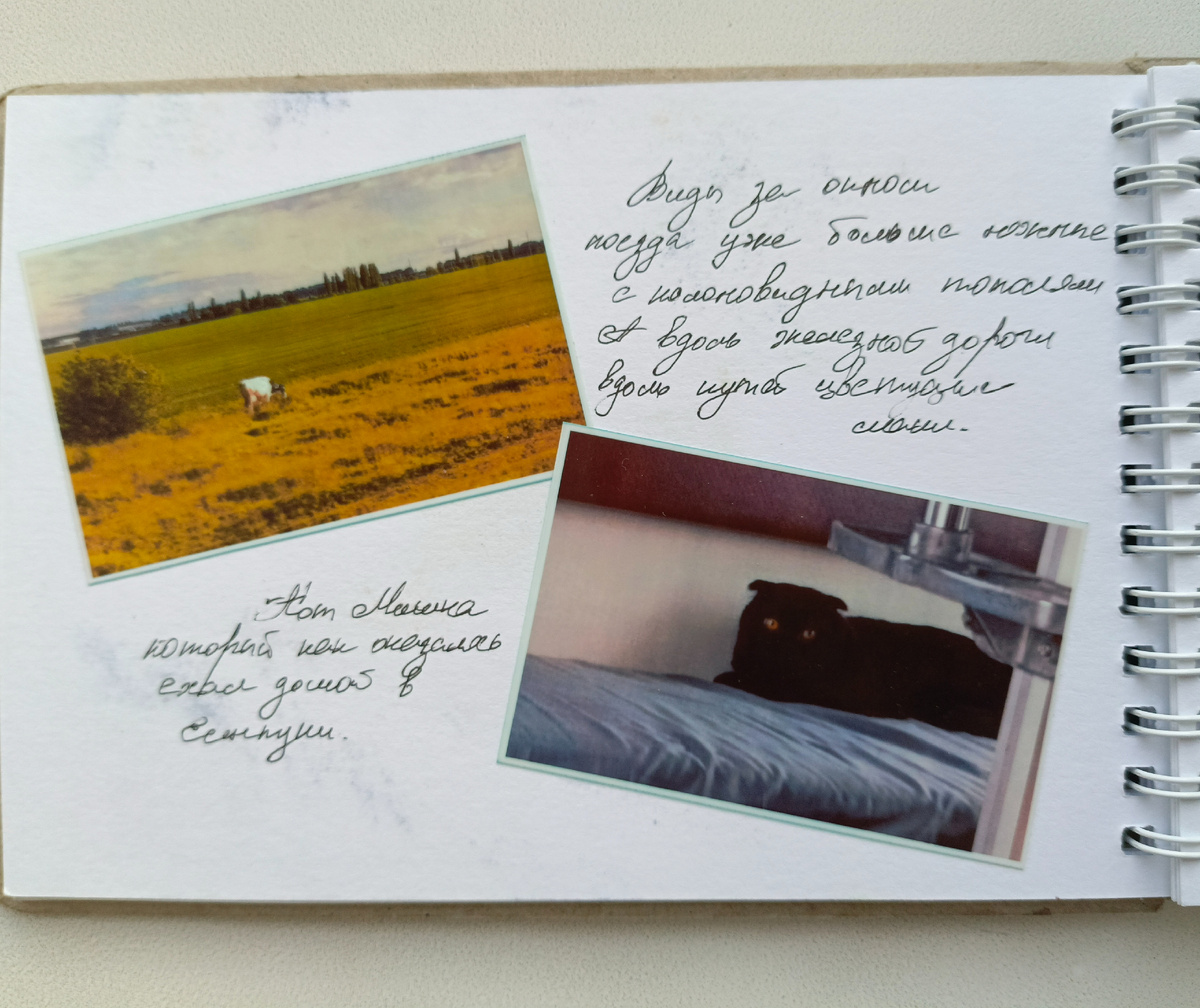 Виды за окном
поезда уже больше южные
с колоновидными тополями
А вдоль железной дороги
вдоль путей цветущие
маки.
Кот
который как оказалось
ехал домой в